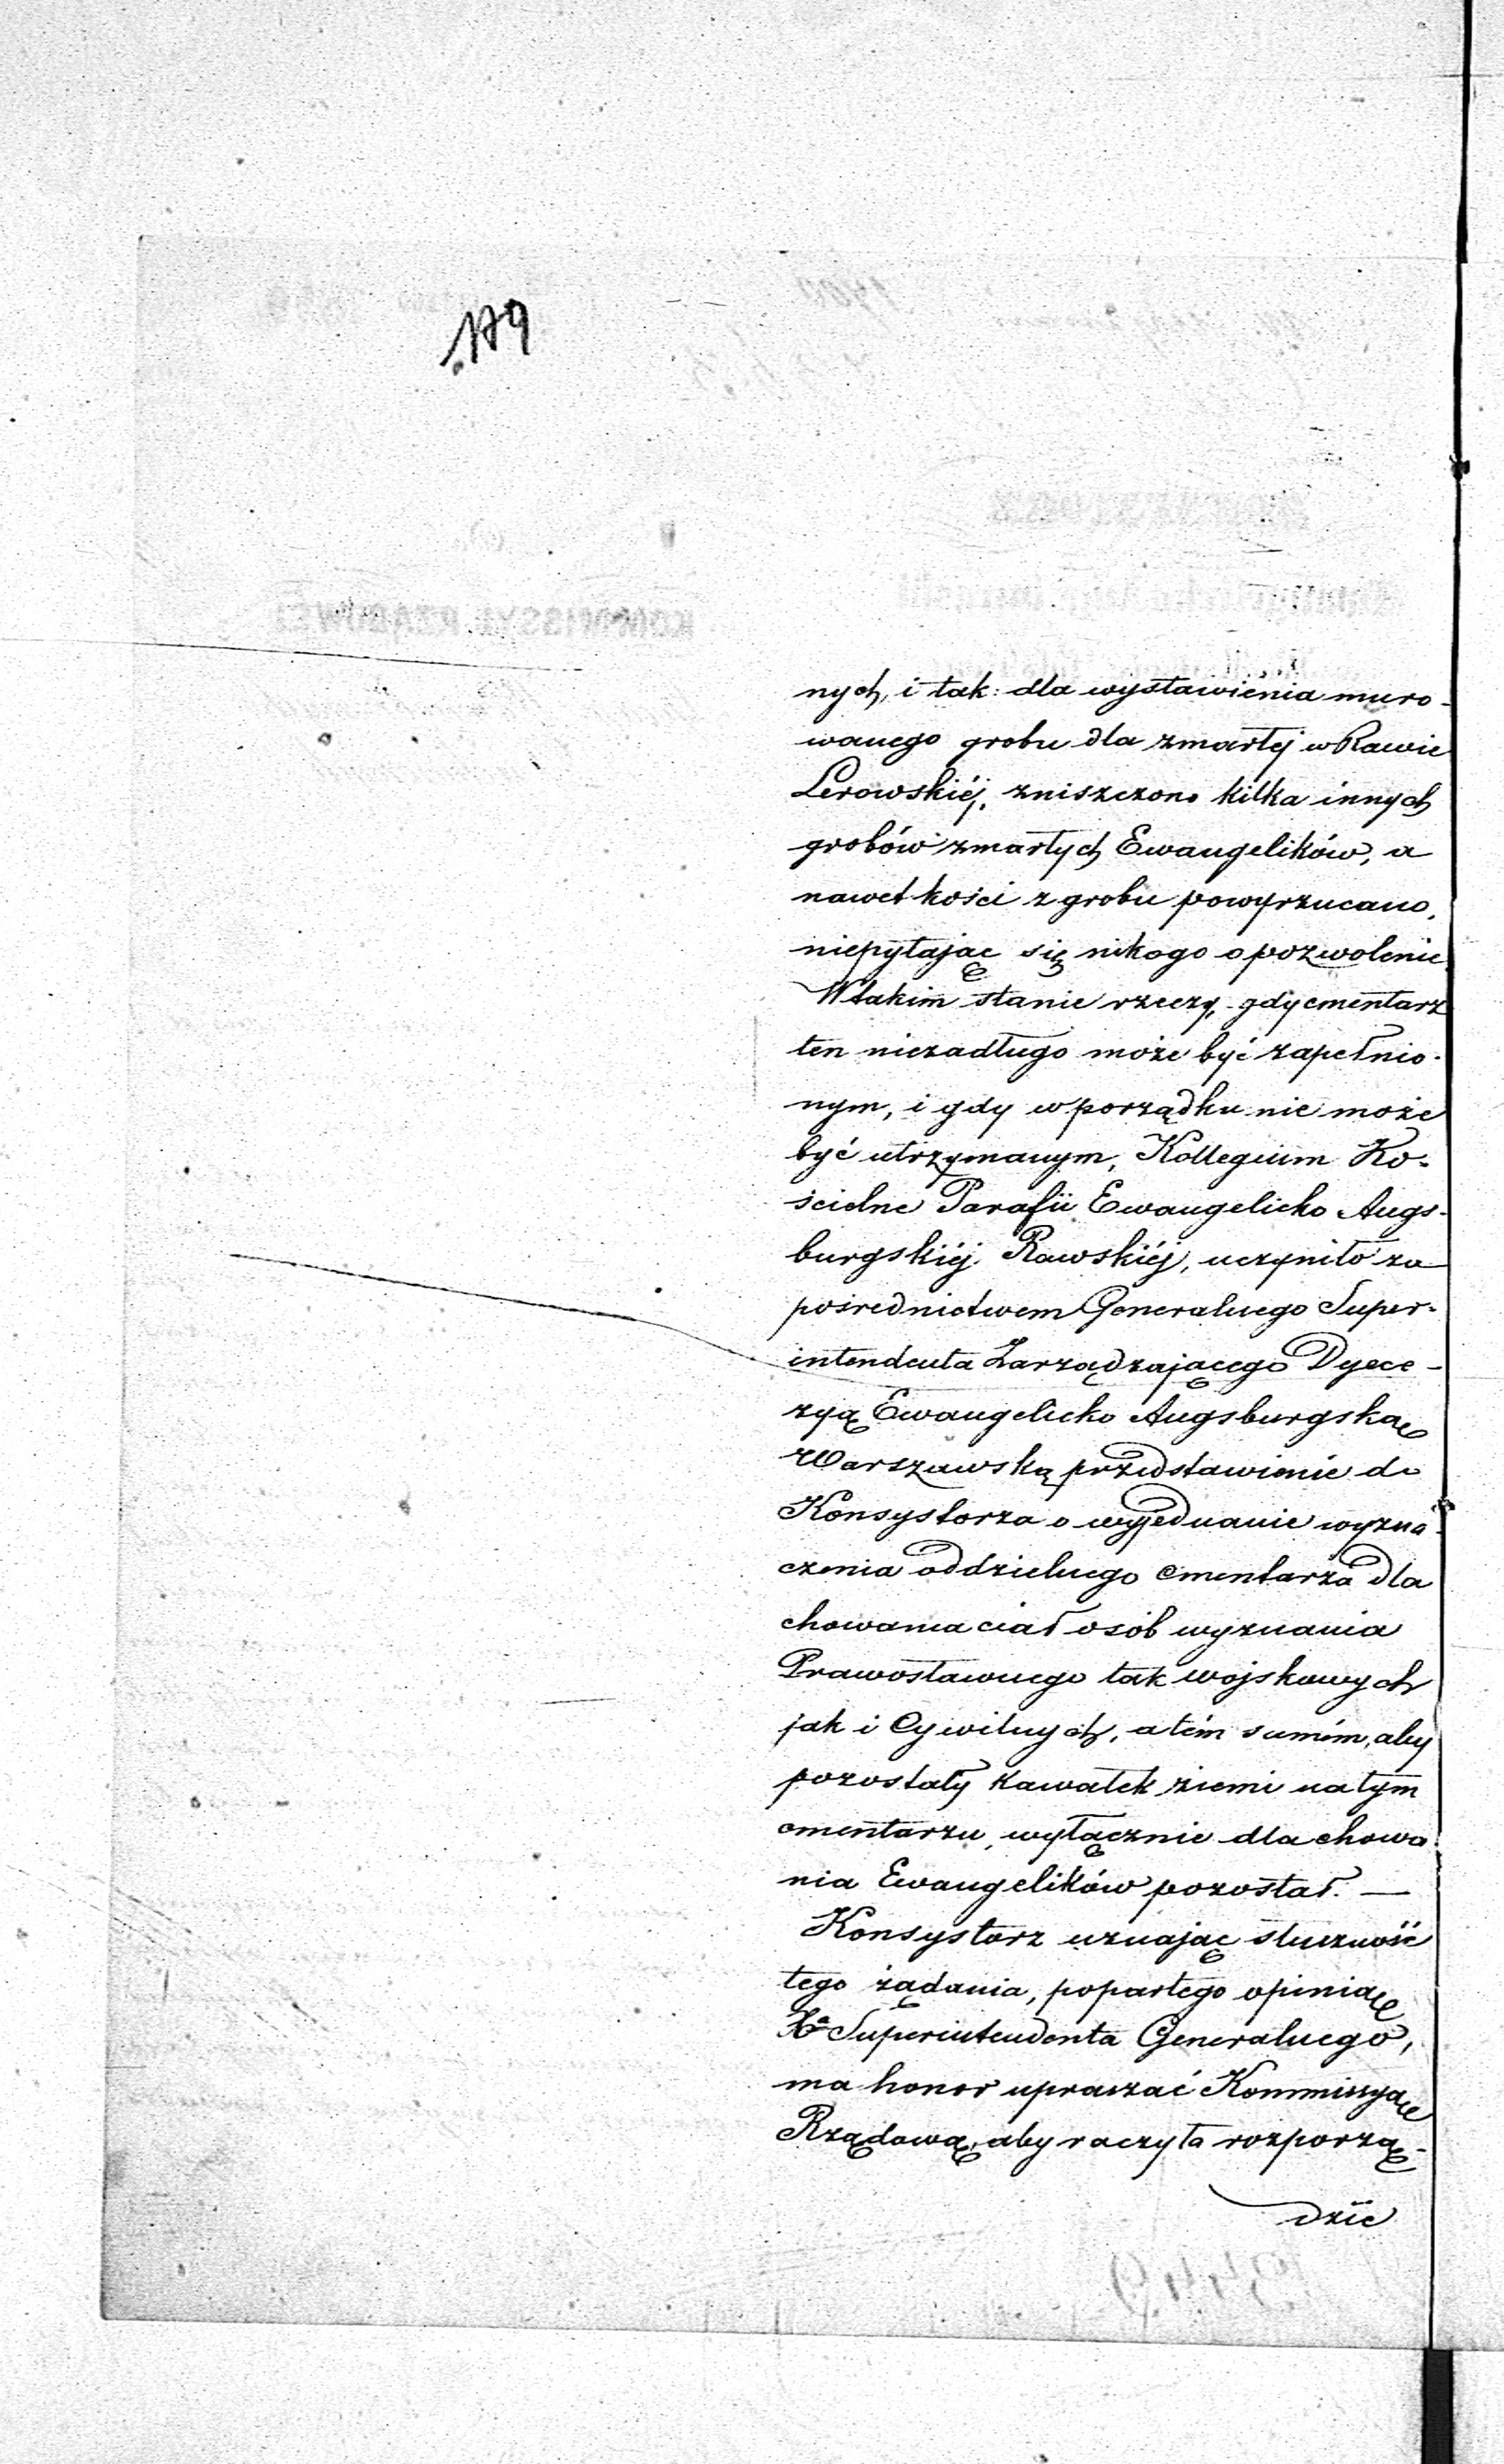 179
nych, i tak: dla wystawienia muro-
wanego grobu dla zmarłej w Rawie
Lerowskiéj, zniszczono kilka innych
grobów zmarłych Ewangelików, a
nawet kości z grobu powyrzucano,
niepytając się nikogo o pozwolenie.
W takim stanie rzeczy, gdy cmentarz
ten niezadługo może być zapełnio-
nym, i gdy w porządku nie może
być utrzymanym, Kollegium Ko-
ścielne Parafii Ewangelicko Augs-
burgskiéj Rawskiéj, uczyniło za
pośrednictwem Generalnego Super-
intendenta Zarządzającego Dyece-
zyą Ewangelicko Augsburgską
Warszawską przedstawienie do
Konsystorza o wyjednanie wyzna-
czenia oddzielnego cmentarza dla
chowania ciał osób wyznania
Prawosławnego tak wojskowych
jak i Cywilnych, a tém samém, aby
pozostały kawałek ziemi na tym
cmentarzu, wyłącznie dla chowa-
nia Ewangelików pozostał. —
Konsystorz uznając słuszność
tego żądania, popartego opinią
Xa Superintendenta Generalnego,
ma honor upraszać Kommissyą
Rządową, aby raczyła rozporzą-
dzić
KOMMISSYI RZĄDOWÉJ